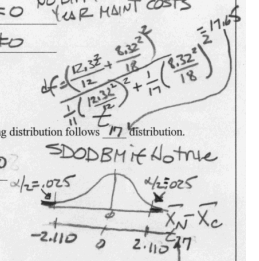 =0
NO DIFF
YEAR MAINT COSTS
≠0
df = (12.32²/12 + 8.32²/18)² / (1/11 (12.32²/12)² + 1/17 (8.32²/18)²) = 17.65
g distribution follows t 17 distribution.
SDODBM if Ho true
α/2=.025
α/2=.025
0
X̄N - X̄C
-2.110 0 2.110 t17